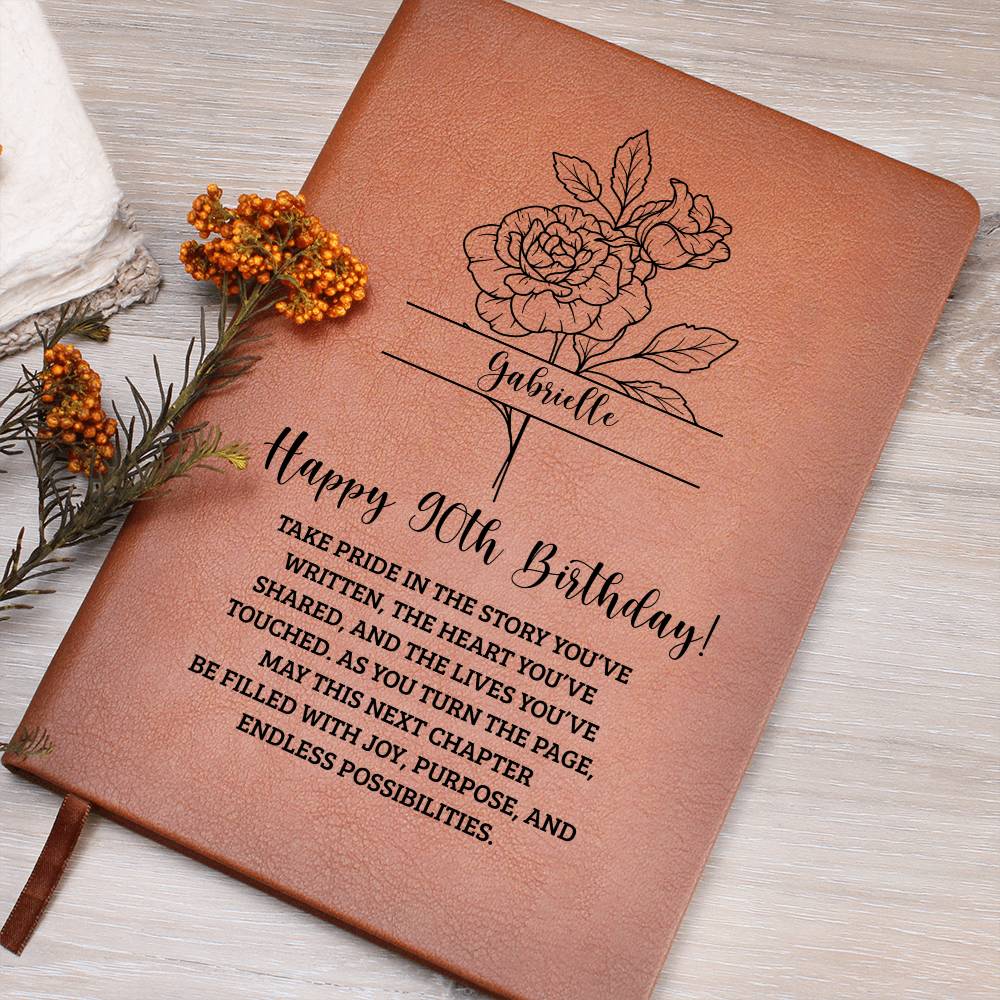 Gabrielle
Happy 90th Birthday!
TAKE PRIDE IN THE STORY YOU'VE
WRITTEN, THE HEART YOU'VE
SHARED, AND THE LIVES YOU'VE
TOUCHED. AS YOU TURN THE PAGE,
MAY THIS NEXT CHAPTER
BE FILLED WITH JOY, PURPOSE, AND
ENDLESS POSSIBILITIES.